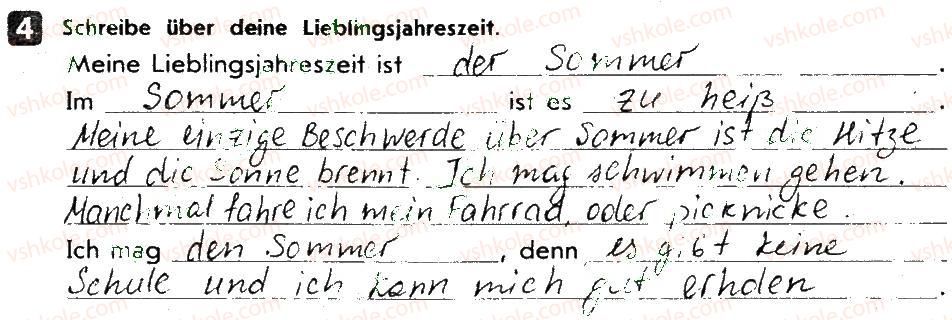 4 Schreibe über deine Lieblingsjahreszeit.
Meine Lieblingsjahreszeit ist der Sommer.
Im Sommer ist es zu heiß.
Meine einzige Beschwerde über Sommer ist die Hitze
und die Sonne brennt. Ich mag schwimmen gehen.
Manchmal fahre ich mein Fahrrad, oder picknicke.
Ich mag den Sommer, denn es gibt keine
Schule und ich kann mich gut erholen.